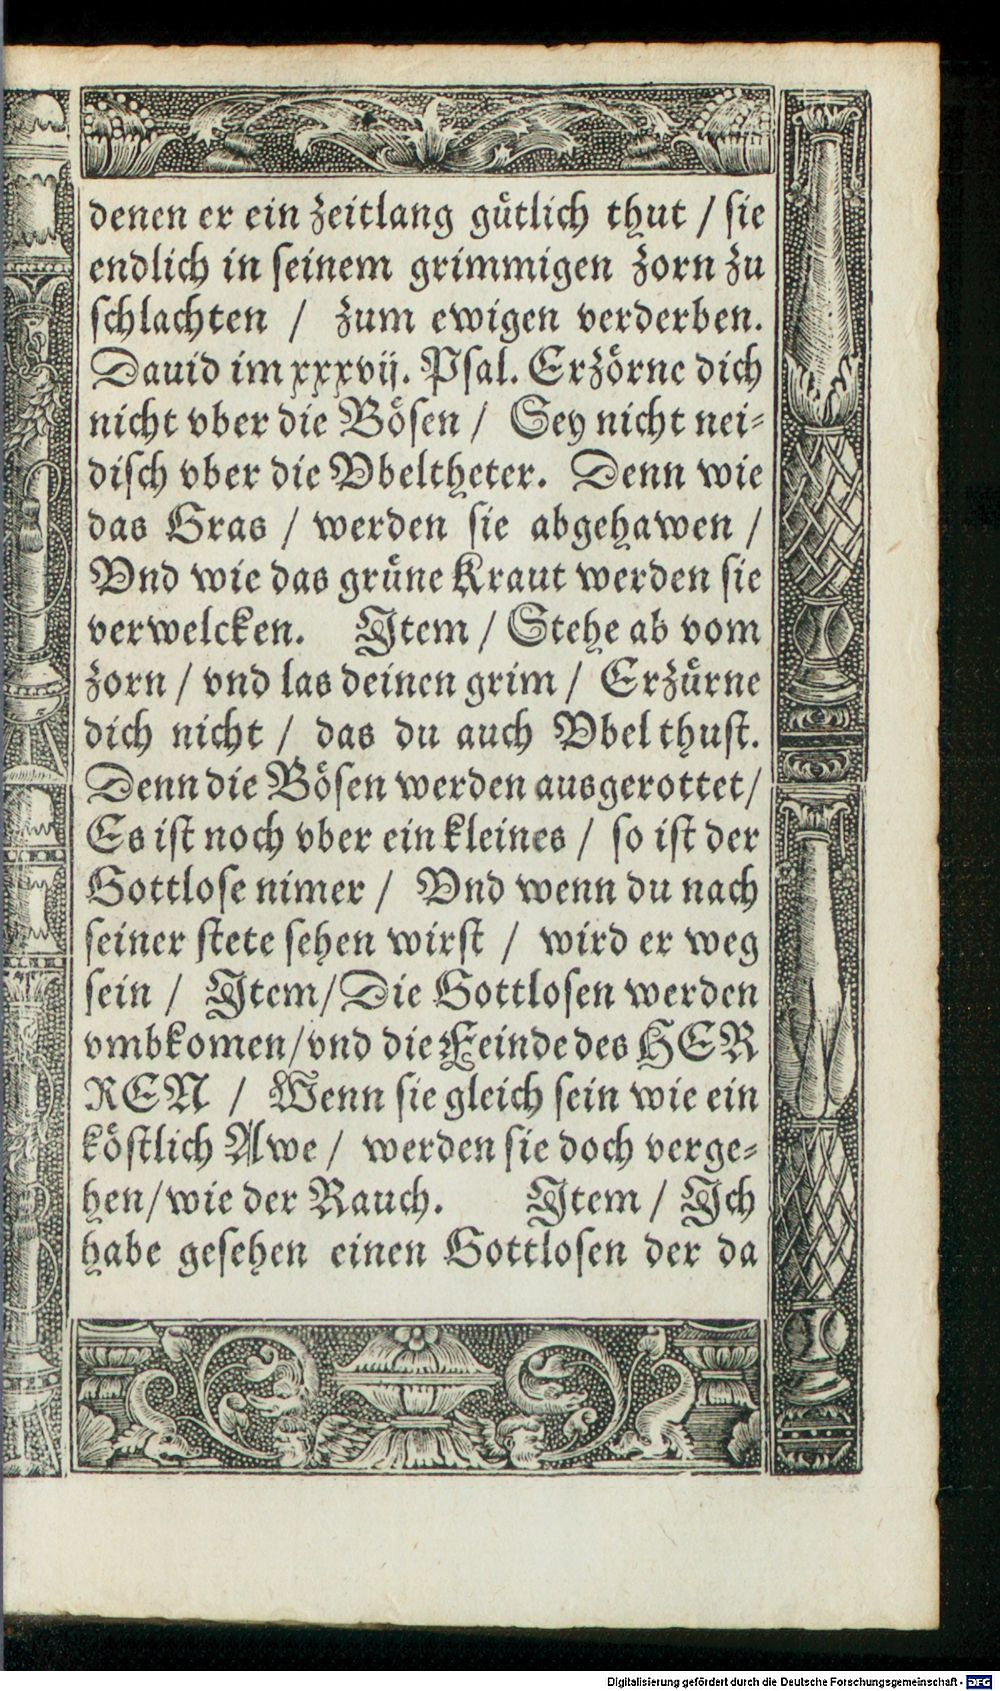 denen er ein zeitlang gütlich thut / sie
endlich in seinem grimmigen zorn zu
schlachten / zum ewigen verderben.
Dauid im xxxvij. Psal. Erzörne dich
nicht vber die Bösen / Sey nicht nei-
disch vber die Vbeltheter. Denn wie
das Gras / werden sie abgehawen /
Vnd wie das grüne Kraut werden sie
verwelcken. Jtem / Stehe ab vom
zorn / vnd las deinen grim / Erzürne
dich nicht / das du auch Vbel thust.
Denn die Bösen werden ausgerottet/
Es ist noch vber ein kleines / so ist der
Gottlose nimer / Vnd wenn du nach
seiner stete sehen wirst / wird er weg
sein / Jtem/ Die Gottlosen werden
vmbkomen/vnd die Feinde des HER
REN / Wenn sie gleich sein wie ein
köstlich Awe / werden sie doch verge-
hen/wie der Rauch. Jtem / Jch
habe gesehen einen Gottlosen der da
Digitalisierung gefördert durch die Deutsche Forschungsgemeinschaft - DFG